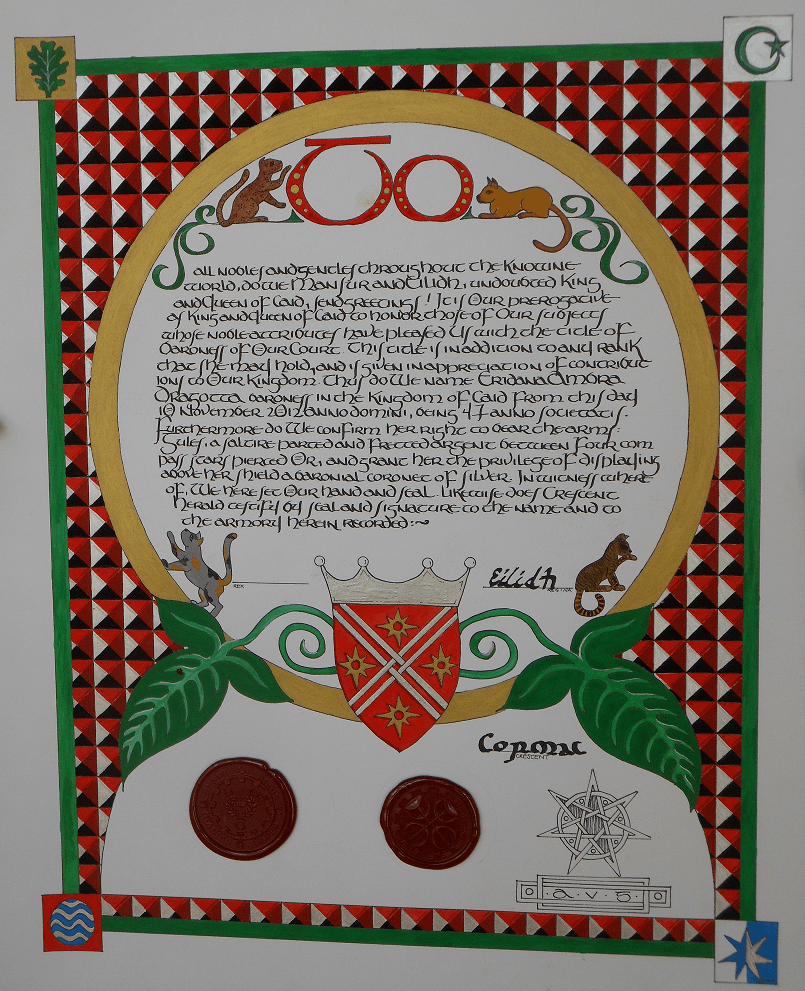 To
all nobles and gentles throughout the Knowne
World, do We Mansur and Eilidh, undoubted King
and Queen of Caid, send greetings! It is Our prerogative
as King and Queen of Caid to honor those of Our subjects
whose noble attributes have pleased Us with the title of
Baroness of Our Court. This title is in addition to any rank
that she may hold, and is given in appreciation of contribut
ions to Our Kingdom. Thus do We name Eridana Ambra
Dragotta, baroness in the Kingdom of Caid from this day
10 November 2012 anno domini, being 47 anno societatis.
Furthermore do We confirm her right to bear the arms:
Gules, a saltire parted and fretted argent between four com
pass stars pierced Or, and grant her the privilege of displaying
above her shield a baronial coronet of silver. In witness where
of, We here set Our hand and seal. Likewise does Crescent
Herald testify by seal and signature to the name and to
the armory herein recorded:~
REX
Eilidh
REGINA
CRESCENT